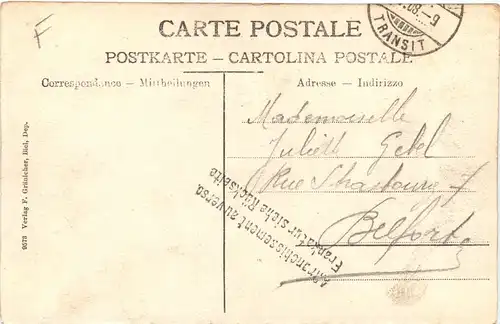 F
CARTE POSTALE
POSTKARTE – CARTOLINA POSTALE
Correspondance – Mittheilungen
Adresse – Indirizzo
.08.–9
TRANSIT
Mademoiselle
Juliette Gebel
Rue Strasbourg 7
Belfort
Affranchissement au verso
Frankatur siehe Rückseite
9678 Verlag F. Gründicher, Biel, Dep.